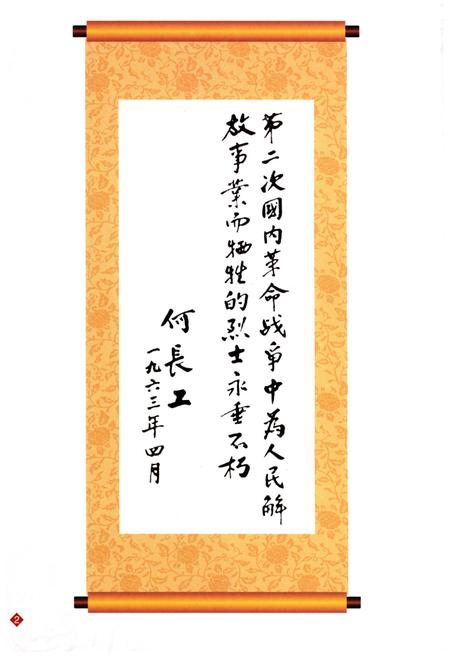 第二次國内革命战争中为人民解
故事業而牺牲的烈士永垂不朽
何長工
一九六三年四月
2